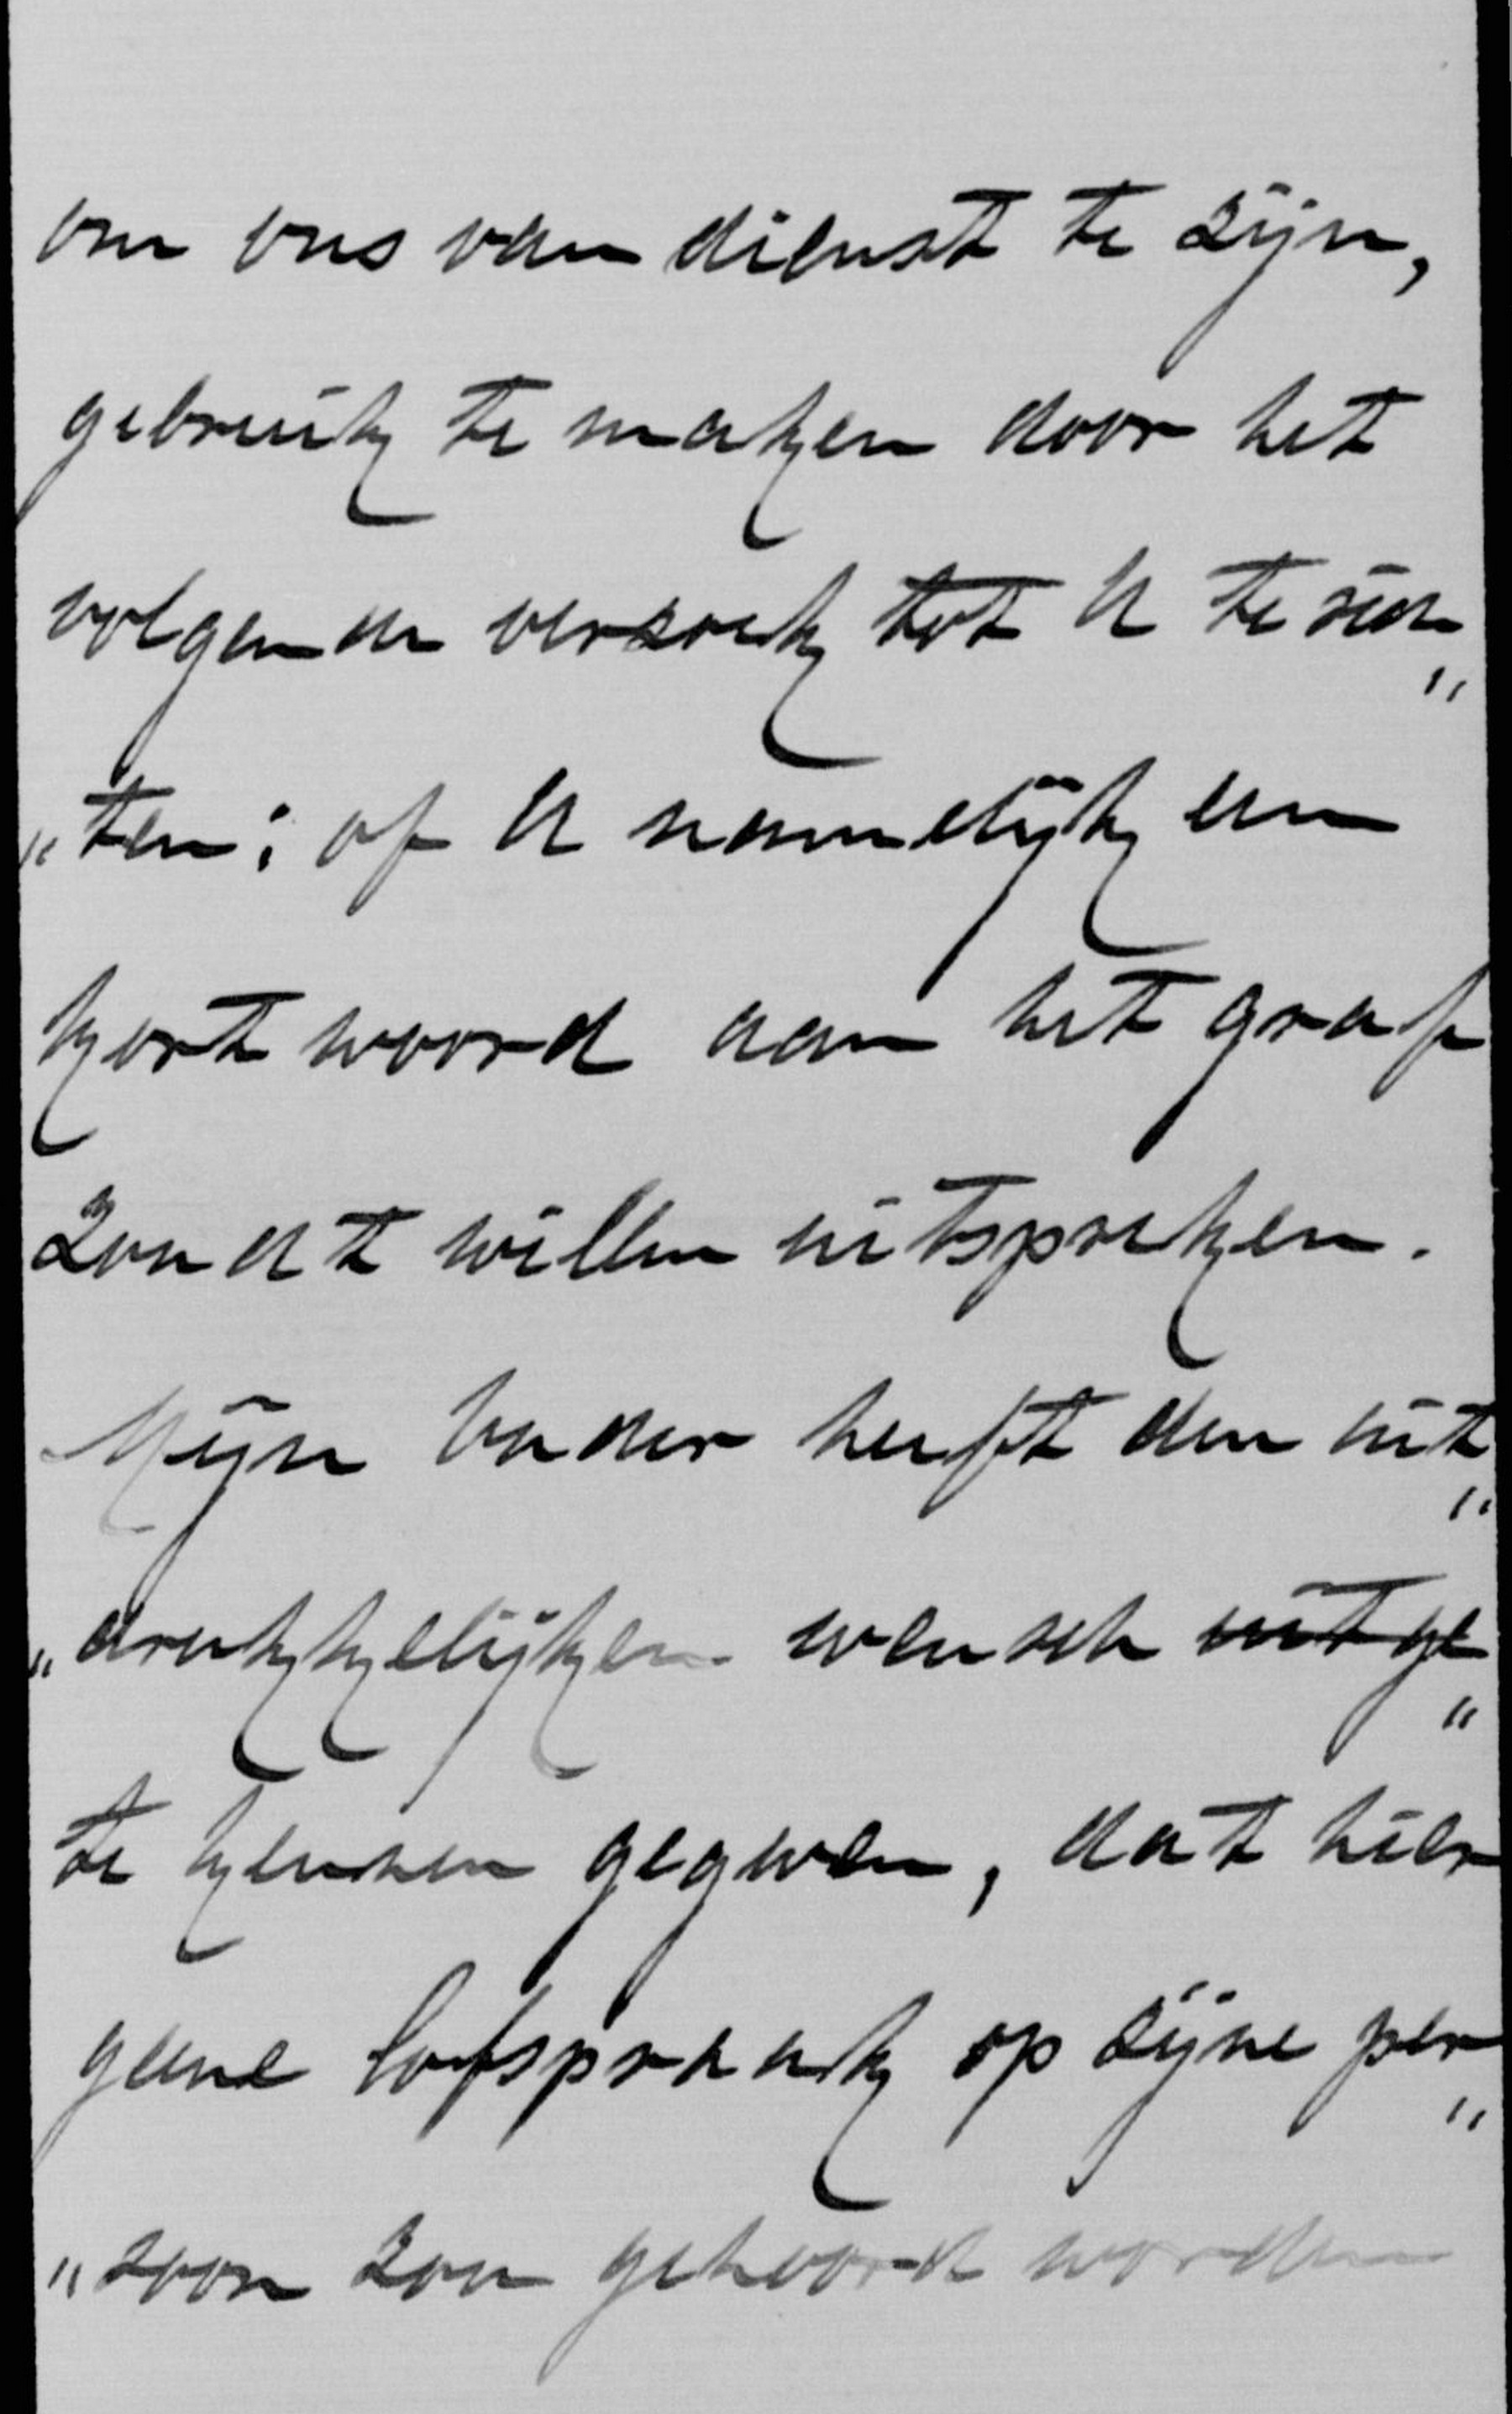 om ons van dienst te zijn,
gebruik te maken door het
volgende verzoek tot U te rich„
„ten: of U namelijk een
kort woord aan het graf
zoudt willen uitspreken.
Mijn Vader heeft den uit„
„drukkelijken wensch uitge„
te kennen gegeven, dat hier
geene lofspraak op zijne per„
„soon zou gehoord worden